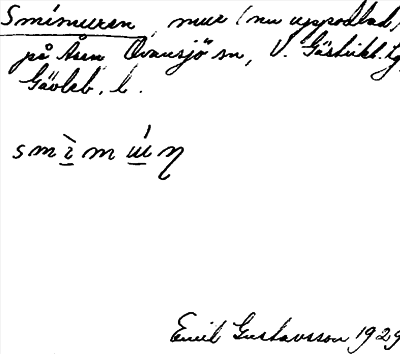 Smimuren, mur (nu uppodlad)
på Åsen, Ovansjö sn, V. Gästrikl. tg
Gävleb. l.
smìmúıŋ
Emil Gustavsson 1929